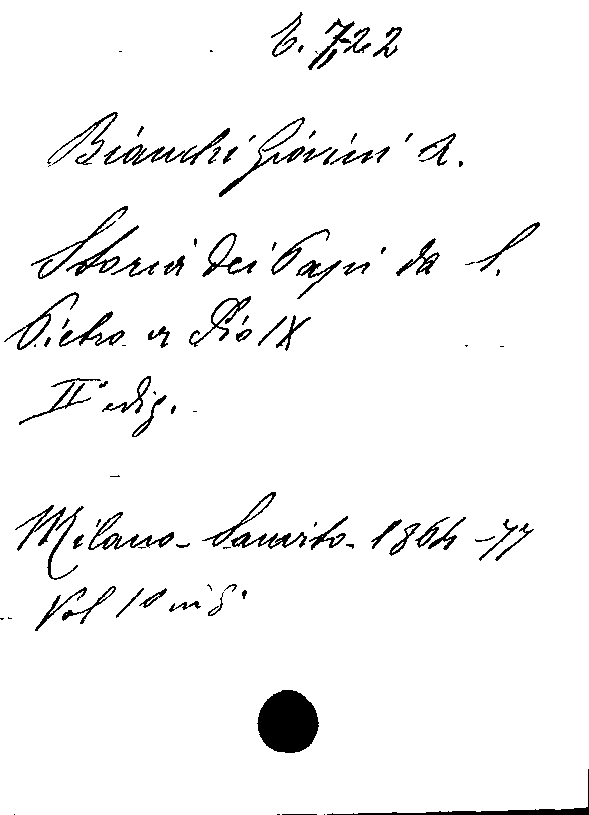 E. 7,22
Bianchi Giovini A.
Storia dei Papi da S.
Pietro a Pio IX
II° ediz.
Milano - Sanvito - 1864 - 77
Vol 10 in 8°